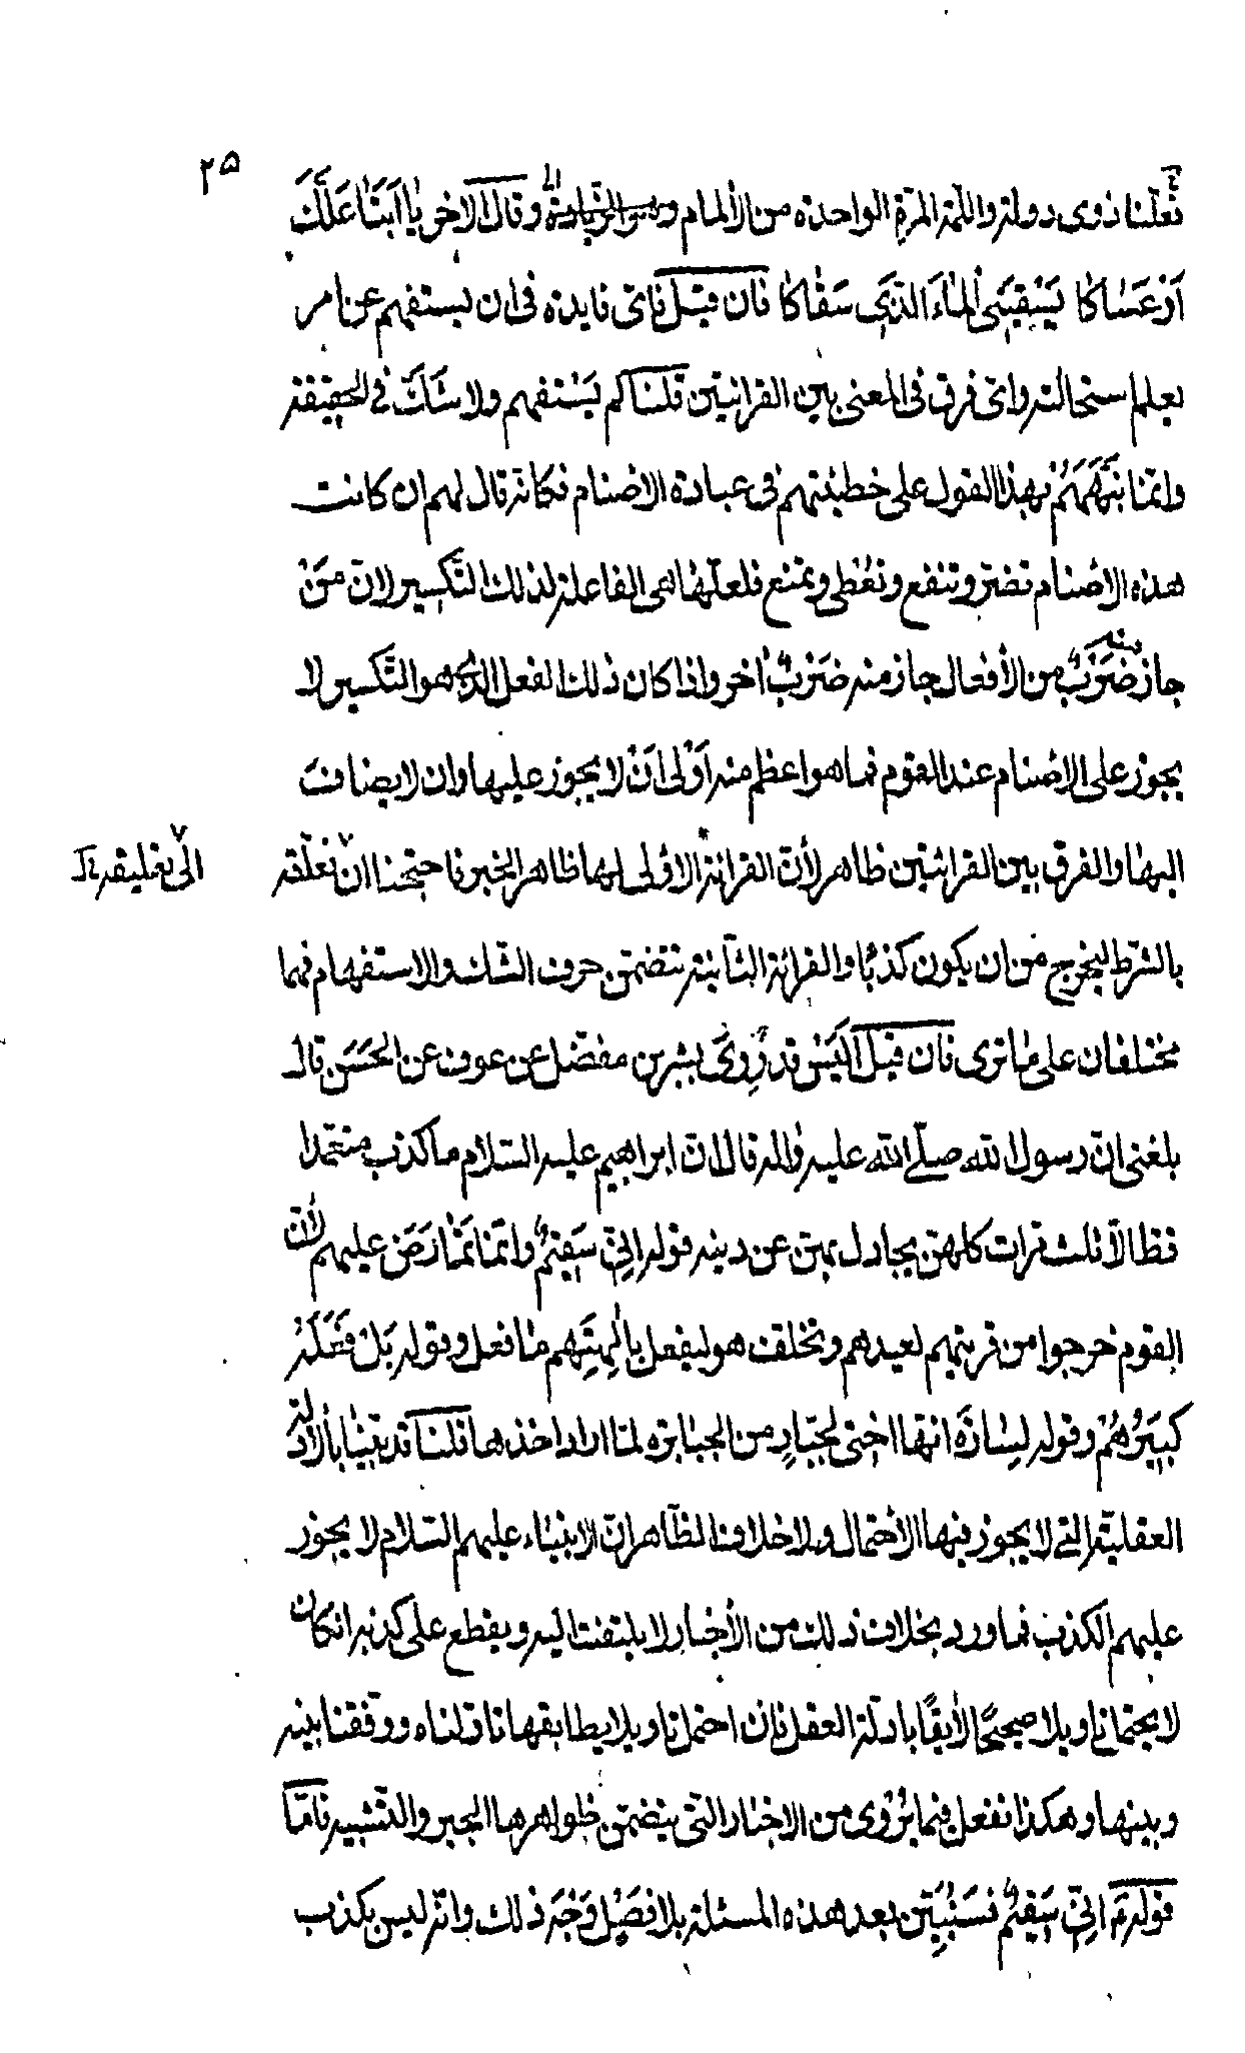 ٢٥
فعلنا ذوى دولة واللمة المرة الواحدة من الالمام وقال الاخر يا ابتا علك
او عساكا يسقينى الماء الذى سقاكا فان قيل فاى فايدة فى ان يستفهم عن امر
يعلم استحالته واى فرق فى المعنى بين القرائتين قلنا لم يستفهم ولا شك فى الحقيقة
وانما نبههم بهذا القول على خطيئتهم فى عبادة الاصنام فكانه قال لهم ان كانت
هذه الاصنام تضر وتنفع وتعطى وتمنع فلعلها هى الفاعلة لذلك التكسير لان من
جاز منه ضرب من الافعال جاز منه ضرب اخر واذا كان ذلك الفعل الذى هو التكسير لا
يجوز على الاصنام عند القوم فما هو اعظم منه اولى ان لا يجوز عليها وان لا يضاف
اليها والفرق بين القرائتين ظاهر لان القرائة الاولى لها ظاهر الخبر فاحتجنا ان نعلقه
الى تعليقه
بالشرط ليخرج من ان يكون كذبا والقرائة الثانية تتضمن حرف الشك والاستفهام فهما
مختلفان على ما ترى فان قيل اليس قد روى بشر بن مفضل عن عوف عن الحسن قال
بلغنى ان رسول الله صلى الله عليه واله قال ان ابراهيم عليه السلام ما كذب متعمدا
قط الا ثلث مرات كلهن يجادل بهن عن دينه قوله انى سقيم وانما تمارض عليهم لان
القوم خرجوا من قريتهم لعيدهم وتخلف هو ليفعل بالهتهم ما فعل وقوله بل فعله
كبيرهم وقوله لسارة انها اختى لجبار من الجبابرة لما اراد اخذها قلنا قد بينا بالادلة
العقلية التى لا يجوز فيها الاحتمال ولا خلاف الظاهر ان الانبياء عليهم السلام لا يجوز
عليهم الكذب فما ورد بخلاف ذلك من الاخبار لا يلتفت اليه ويقطع على كذبه ان كان
لا يحتمل تاويلا صحيحا لايقا بادلة العقل فان احتمل تاويلا يطابقها تاولناه ووفقنا بينه
وبينها وهكذا نفعل فيما يروى من الاخبار التى يتضمن ظواهرها الجبر والتشبيه فاما
قوله ع انى سقيم فسنبين بعد هذه المسئلة بلا فصل وجه ذلك وانه ليس بكذب